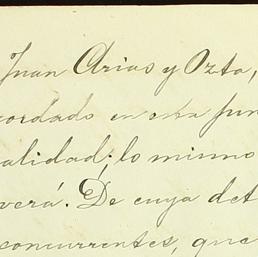 Juan Arias y Ozta,
cordado en esta jun
alidad; lo mismo
verá. De cuya det
concurrentes, que